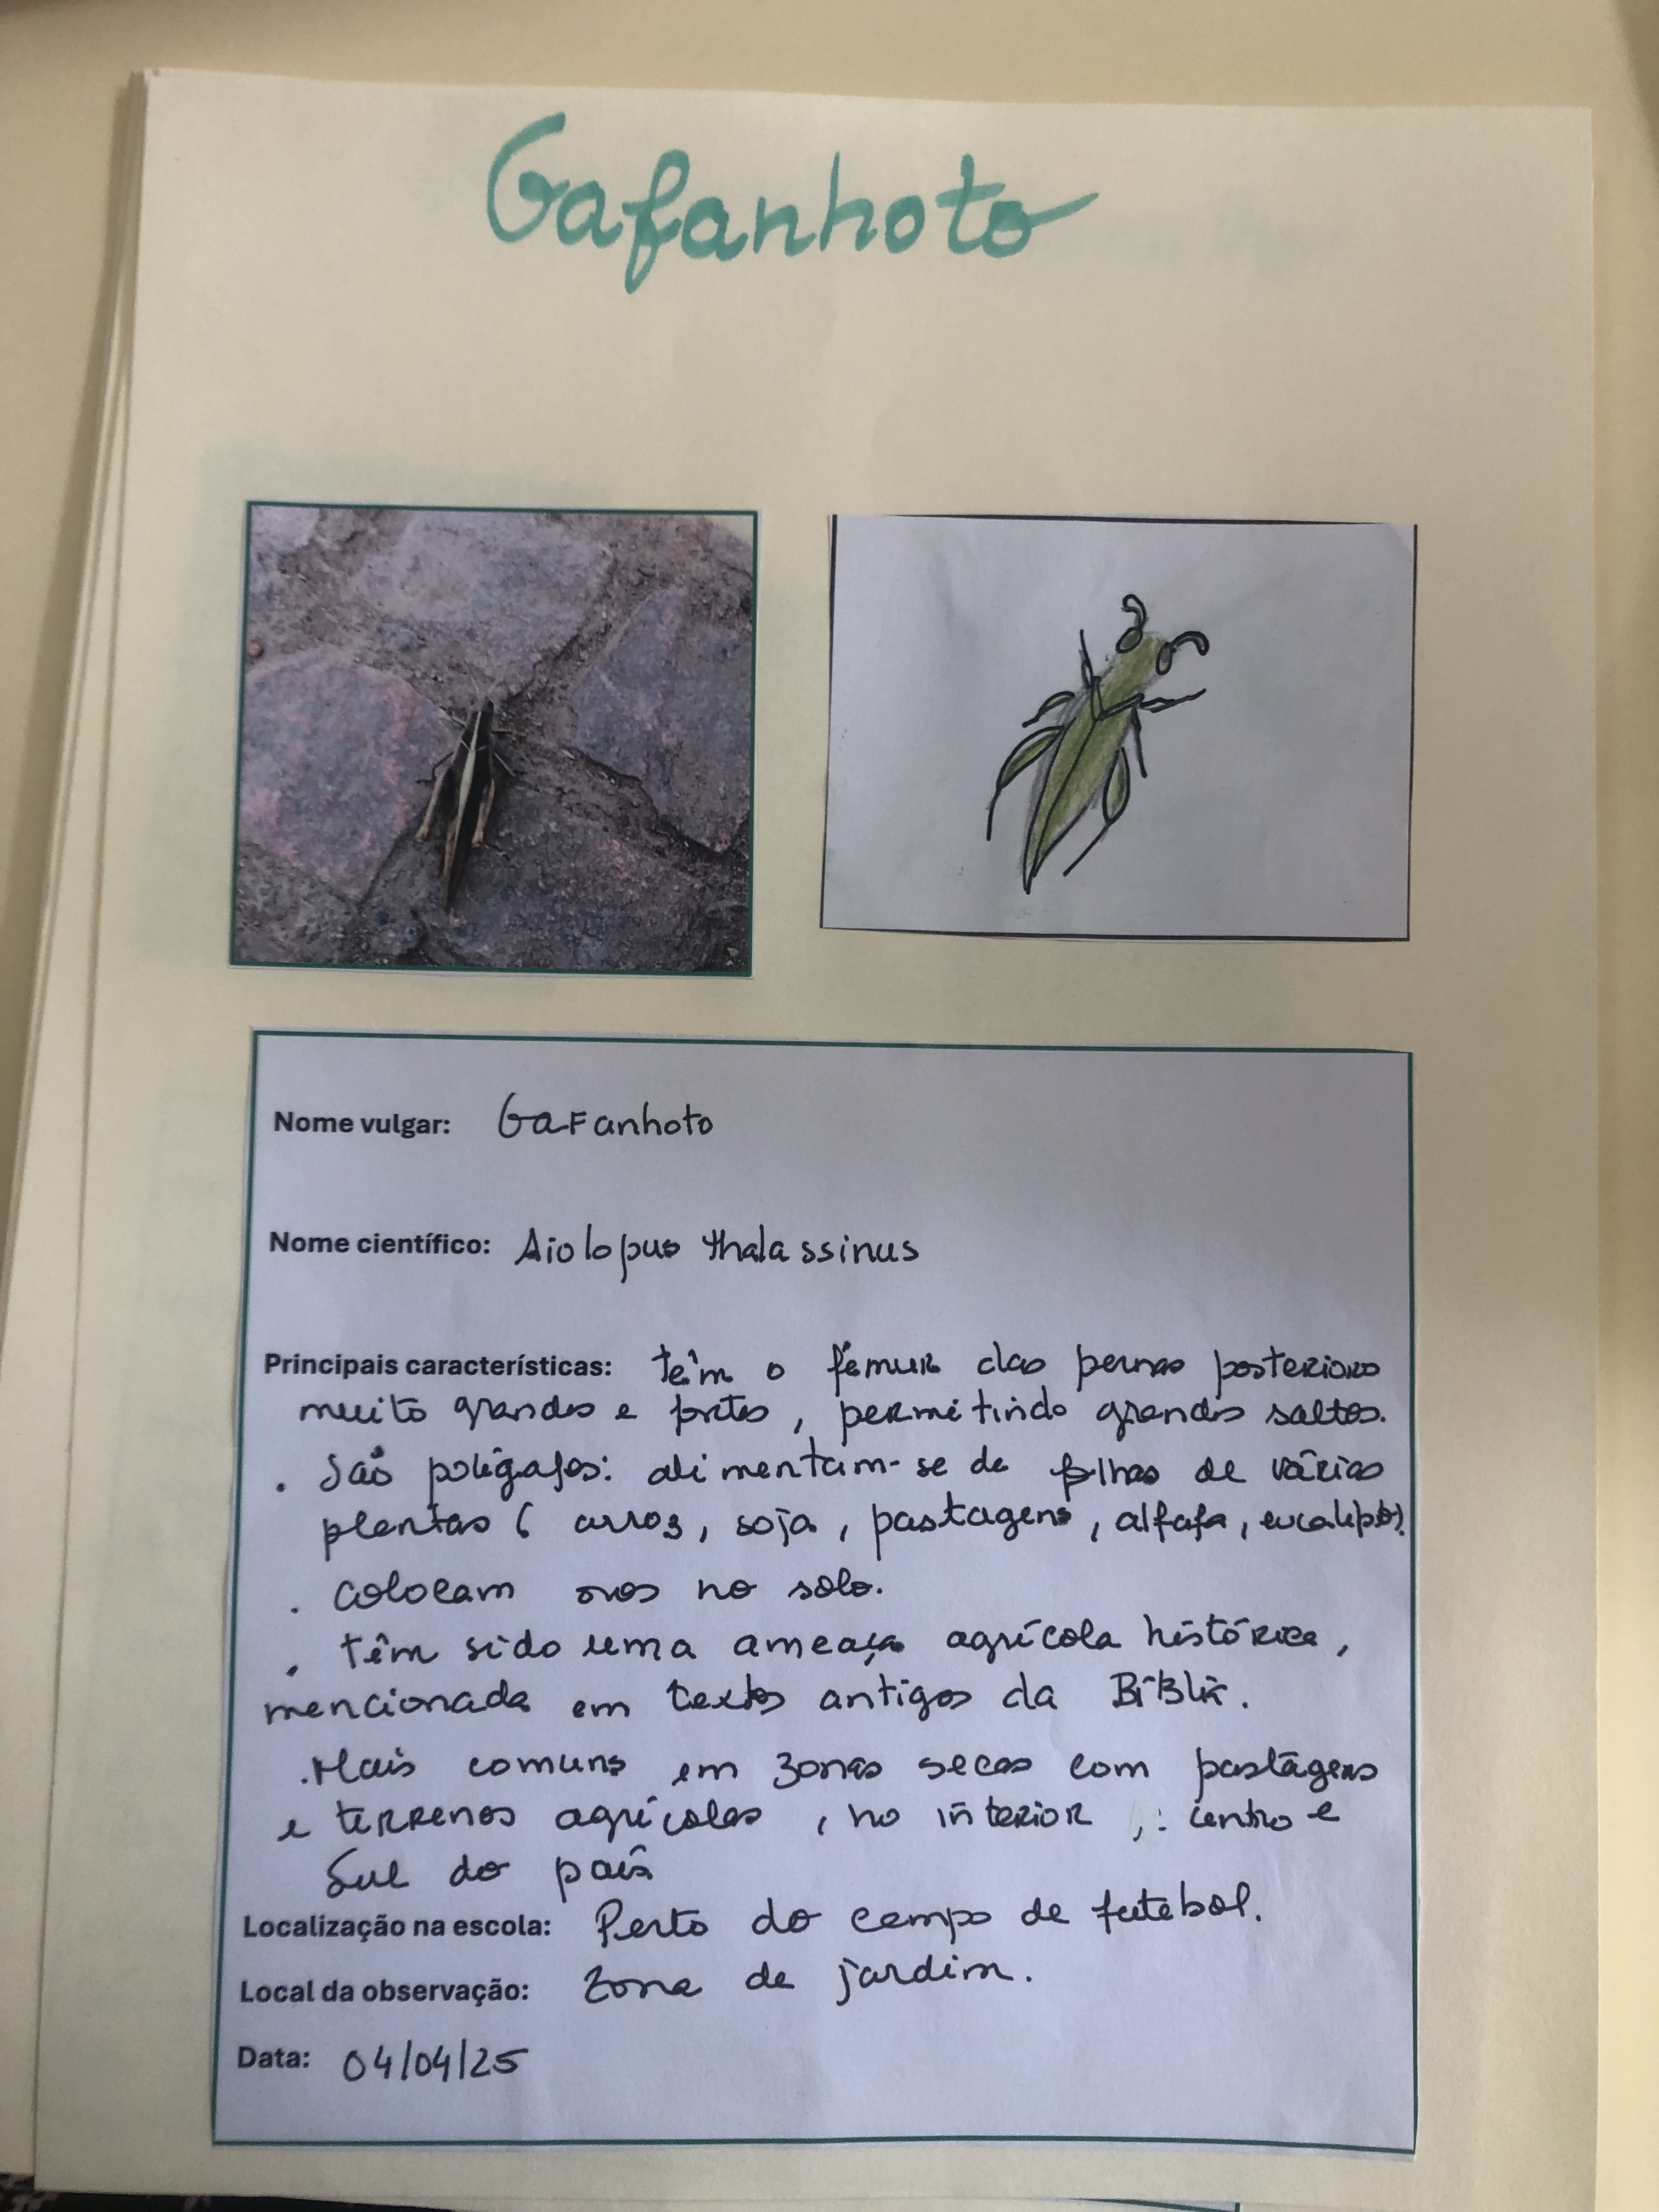 Gafanhoto
Nome vulgar: Gafanhoto
Nome científico: Aiolopus thalassinus
Principais características: têm o fémur das pernas posteriores
muito grandes e fortes, permitindo grandes saltos.
. São polígafos: alimentam-se de folhas de várias
plantas ( arroz, soja, pastagens, alfafa, eucaliptos).
. Colocam ovos no solo.
. Têm sido uma ameaça agrícola histórica,
mencionada em textos antigos da Bíblia.
. Mais comuns em zonas secas com pastagens
e terrenos agrícolas, no interior,: centro e
Sul do país
Localização na escola: Perto do campo de futebol.
Local da observação: Zona de jardim.
Data: 04/04/25